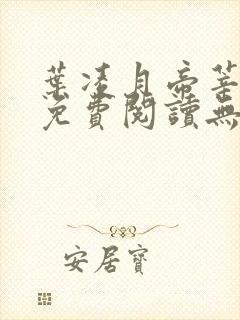 葉凌月帝莘
免費閱讀無
安居寶